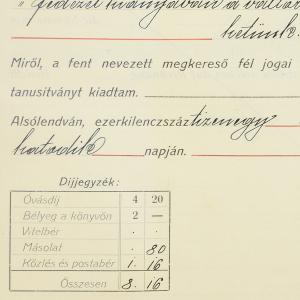 „ fedezet hiányában a
hetünk.
Miről, a fent nevezett megkereső fél jogai
tanusítványt kiadtam.
Alsólendván, ezerkilencszáz tizenegy
hatodik napján.
Díjjegyzék:
Óvásdíj 4 20
Bélyeg a könyvön 2 —
Vitelbér . .
Másolat . 80
Közlés és postabér 1. 16
Összesen 8. 16